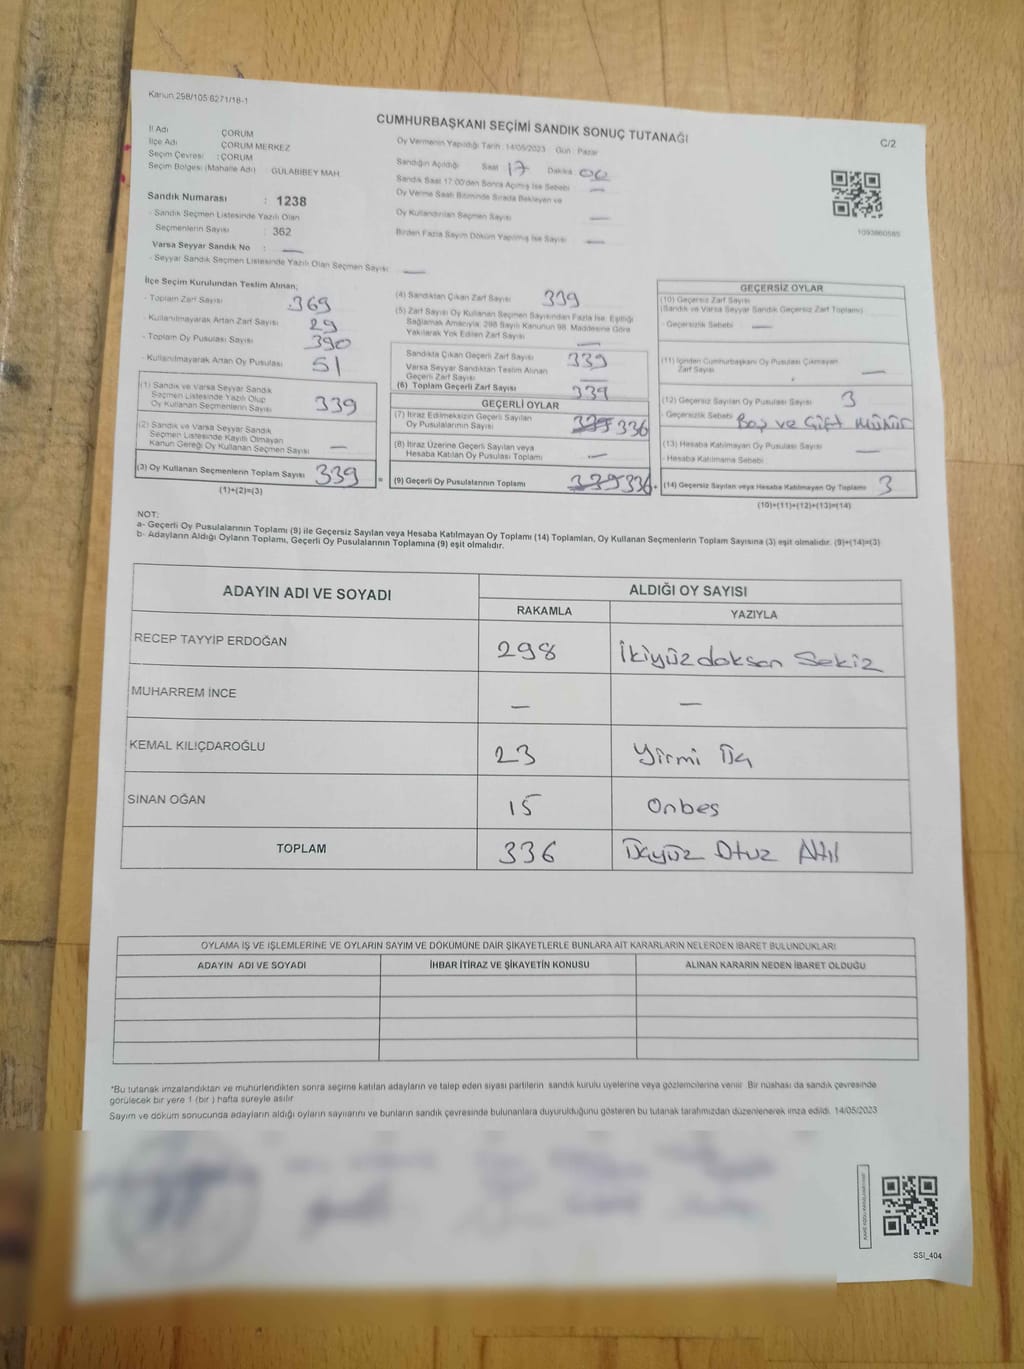 Kanun 298/105 6271/18-1
CUMHURBAŞKANI SEÇİMİ SANDIK SONUÇ TUTANAĞI
C/2
İl Adı ÇORUM
İlçe Adı ÇORUM MERKEZ
Seçim Çevresi : ÇORUM
Seçim Bölgesi (Mahalle Adı) GÜLABİBEY MAH.
Sandık Numarası : 1238
- Sandık Seçmen Listesinde Yazılı Olan
Seçmenlerin Sayısı : 362
Varsa Seyyar Sandık No : —
- Seyyar Sandık Seçmen Listesinde Yazılı Olan Seçmen Sayısı —
Oy Vermenin Yapıldığı Tarih : 14/05/2023 Gün : Pazar
Sandığın Açıldığı Saat 17 Dakika 00
Sandık Saat 17:00'den Sonra Açılmış İse Sebebi —
Oy Verme Saati Bitiminde Sırada Bekleyen ve
Oy Kullandırılan Seçmen Sayısı —
Birden Fazla Sayım Döküm Yapılmış İse Sayısı —
1093860585
İlçe Seçim Kurulundan Teslim Alınan;
- Toplam Zarf Sayısı 369
- Kullanılmayarak Artan Zarf Sayısı 29
- Toplam Oy Pusulası Sayısı 390
- Kullanılmayarak Artan Oy Pusulası 51
(1) Sandık ve Varsa Seyyar Sandık
Seçmen Listesinde Yazılı Olup
Oy Kullanan Seçmenlerin Sayısı 339
(2) Sandık ve Varsa Seyyar Sandık
Seçmen Listesinde Kayıtlı Olmayan
Kanun Gereği Oy Kullanan Seçmen Sayısı —
(3) Oy Kullanan Seçmenlerin Toplam Sayısı 339 =
(1)+(2)=(3)
(4) Sandıktan Çıkan Zarf Sayısı 339
(5) Zarf Sayısı Oy Kullanan Seçmen Sayısından Fazla İse, Eşitliği
Sağlamak Amacıyla, 298 Sayılı Kanunun 98. Maddesine Göre
Yakılarak Yok Edilen Zarf Sayısı —
Sandıkta Çıkan Geçerli Zarf Sayısı 339
Varsa Seyyar Sandıktan Teslim Alınan
Geçerli Zarf Sayısı —
(6) Toplam Geçerli Zarf Sayısı 339
GEÇERLİ OYLAR
(7) İtiraz Edilmeksizin Geçerli Sayılan
Oy Pusulalarının Sayısı 336
(8) İtiraz Üzerine Geçerli Sayılan veya
Hesaba Katılan Oy Pusulası Toplamı —
(9) Geçerli Oy Pusulalarının Toplamı 336 +
GEÇERSİZ OYLAR
(10) Geçersiz Zarf Sayısı
(Sandık ve Varsa Seyyar Sandık Geçersiz Zarf Toplamı)
- Geçersizlik Sebebi —
(11) İçinden Cumhurbaşkanı Oy Pusulası Çıkmayan
Zarf Sayısı —
(12) Geçersiz Sayılan Oy Pusulası Sayısı 3
- Geçersizlik Sebebi Boş ve Çift Mühür
(13) Hesaba Katılmayan Oy Pusulası Sayısı —
- Hesaba Katılmama Sebebi
(14) Geçersiz Sayılan veya Hesaba Katılmayan Oy Toplamı 3
(10)+(11)+(12)+(13)=(14)
NOT:
a- Geçerli Oy Pusulalarının Toplamı (9) ile Geçersiz Sayılan veya Hesaba Katılmayan Oy Toplamı (14) Toplamları, Oy Kullanan Seçmenlerin Toplam Sayısına (3) eşit olmalıdır. (9)+(14)=(3)
b- Adayların Aldığı Oyların Toplamı, Geçerli Oy Pusulalarının Toplamına (9) eşit olmalıdır.
ADAYIN ADI VE SOYADI ALDIĞI OY SAYISI
RAKAMLA YAZIYLA
RECEP TAYYİP ERDOĞAN 298 İkiyüzdoksan Sekiz
MUHARREM İNCE — —
KEMAL KILIÇDAROĞLU 23 Yirmi Üç
SİNAN OĞAN 15 Onbeş
TOPLAM 336 Üçyüz Otuz Altı
OYLAMA İŞ VE İŞLEMLERİNE VE OYLARIN SAYIM VE DÖKÜMÜNE DAİR ŞİKAYETLERLE BUNLARA AİT KARARLARIN NELERDEN İBARET BULUNDUKLARI
ADAYIN ADI VE SOYADI İHBAR İTİRAZ VE ŞİKAYETİN KONUSU ALINAN KARARIN NEDEN İBARET OLDUĞU
*Bu tutanak imzalandıktan ve mühürlendikten sonra seçime katılan adayların ve talep eden siyasi partilerin sandık kurulu üyelerine veya gözlemcilerine verilir. Bir nüshası da sandık çevresinde
görülecek bir yere 1 (bir) hafta süreyle asılır.
Sayım ve döküm sonucunda adayların aldığı oyların sayılarını ve bunların sandık çevresinde bulunanlara duyurulduğunu gösteren bu tutanak tarafımızdan düzenlenerek imza edildi. 14/05/2023
SSI_404